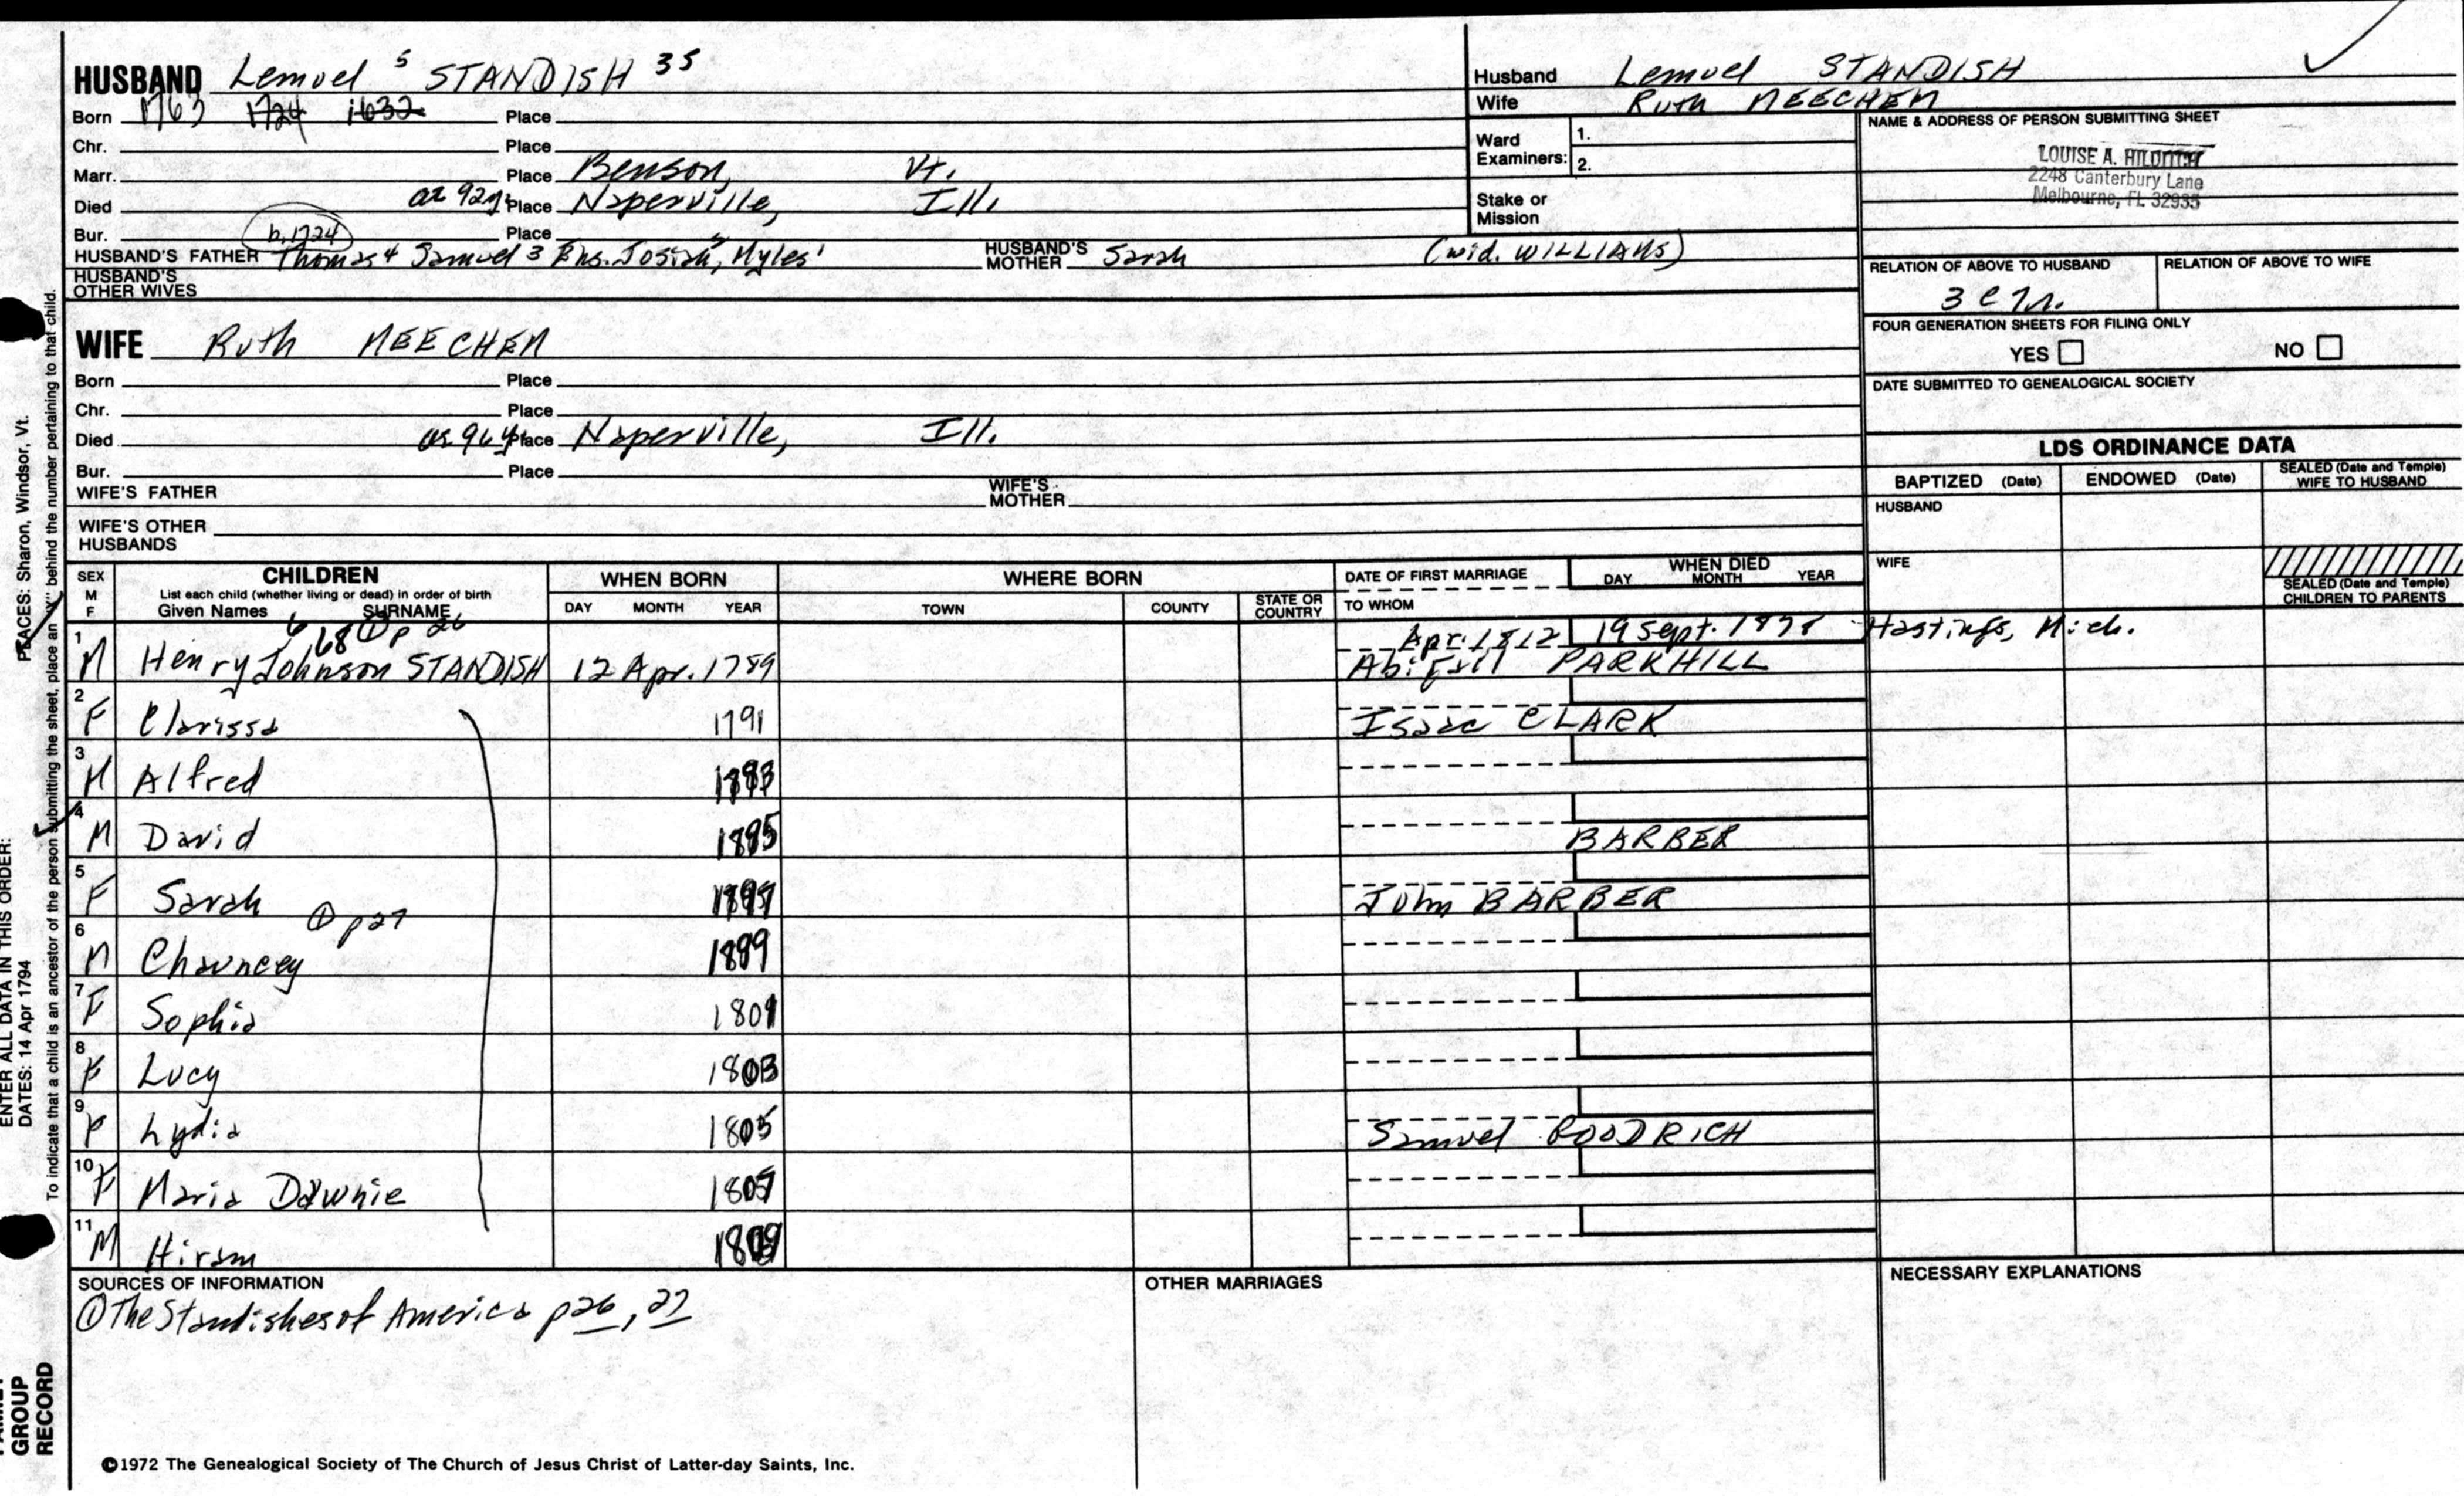 HUSBAND Lemuel 5 STANDISH 35
Born 1763 1724 1632 Place
Chr. Place
Marr. Place Benson, Vt.
Died at 92y Place Naperville, Ill.
Bur. Place
b. 1724
HUSBAND'S FATHER Thomas 4 Samuel 3 Ens. Josiah 2, Myles 1 HUSBAND'S MOTHER Sarah (wid. WILLIAMS)
HUSBAND'S OTHER WIVES
Husband Lemuel STANDISH
Wife Ruth NEECHEN
Ward Examiners: 1.
2.
Stake or Mission
NAME & ADDRESS OF PERSON SUBMITTING SHEET
LOUISE A. HILDITCH
2248 Canterbury Lane
Melbourne, FL 32935
RELATION OF ABOVE TO HUSBAND RELATION OF ABOVE TO WIFE
FOUR GENERATION SHEETS FOR FILING ONLY
YES NO
DATE SUBMITTED TO GENEALOGICAL SOCIETY
WIFE Ruth NEECHEN
Born Place
Chr. Place
Died 96y Place Naperville, Ill.
Bur. Place
WIFE'S FATHER WIFE'S MOTHER
WIFE'S OTHER HUSBANDS
LDS ORDINANCE DATA
BAPTIZED (Date) ENDOWED (Date) SEALED (Date and Temple) WIFE TO HUSBAND
HUSBAND
WIFE
SEALED (Date and Temple) CHILDREN TO PARENTS
SEX M F CHILDREN WHEN BORN WHERE BORN DATE OF FIRST MARRIAGE WHEN DIED
List each child (whether living or dead) in order of birth
Given Names SURNAME DAY MONTH YEAR TOWN COUNTY STATE OR COUNTRY TO WHOM DAY MONTH YEAR
6 68 ① p 26 Apr. 1812 19 Sept. Hastings, Mich.
1 M Henry Johnson STANDISH 12 Apr. 1789 Abigail PARKHILL
2 F Clarissa 1791 Isaac CLARK
3 M Alfred
4 M David BARBER
5 F Sarah John BARBER
① p 27
6 M Chauncey
7 F Sophia 1801
8 F Lucy 1803
9 F Lydia 1805 Samuel GOODRICH
10 F Maria Downie 1807
11 M Hiram 1809
SOURCES OF INFORMATION OTHER MARRIAGES NECESSARY EXPLANATIONS
① The Standishes of America p 26, 27
©1972 The Genealogical Society of The Church of Jesus Christ of Latter-day Saints, Inc.
GROUP
RECORD
ENTER ALL DATA IN THIS ORDER:
DATES: 14 Apr 1794
PLACES: Sharon, Windsor, Vt.
To indicate that a child is an ancestor of the person submitting the sheet, place an "X" behind the number pertaining to that child.